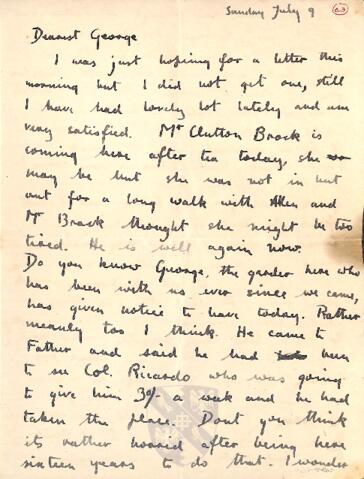 Sunday July 9
Dearest George
I was just hoping for a letter this
morning but I did not get one, still
I have had lovely lot lately and am
very satisfied. Mr Clutton Brock is
coming here after tea today, she
may be but she was not in but
out for a long walk with Allen and
Mr Brock thought she might be too
tired. He is well again now.
Do you know George, the garder here who
has been with us ever since we came,
has given notice to leave today. Rather
meanly too I think. He came to
Father and said he had been
to see Col. Ricardo who was going
to give him 30/- a week and he had
taken the place. Dont you think
its rather horrid after being here
sixteen years to do that. I wonder